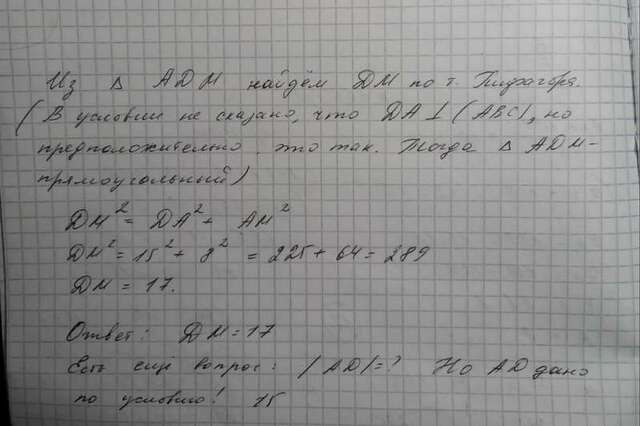 Из Δ ADM найдём DM по т. Пифагора.
(В условии не сказано, что DA ⊥ (ABC), но
предположительно это так. Тогда Δ ADM-
прямоугольный)
DM² = DA² + AM²
DM² = 15² + 8² = 225 + 64 = 289
DM = 17.
Ответ: DM = 17
Есть ещё вопрос: |AD| = ? Но AD дано
по условию! 15